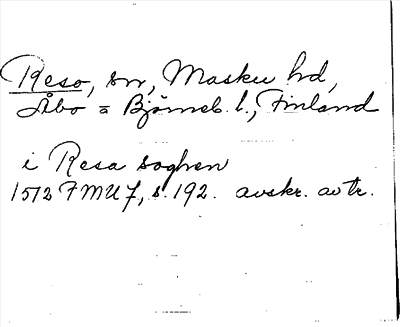 Reso, sn, Masku hd,
Åbo = Björneb. l., Finland
i Resa soghen
1512 FMU 7, s. 192. avskr. av tr.